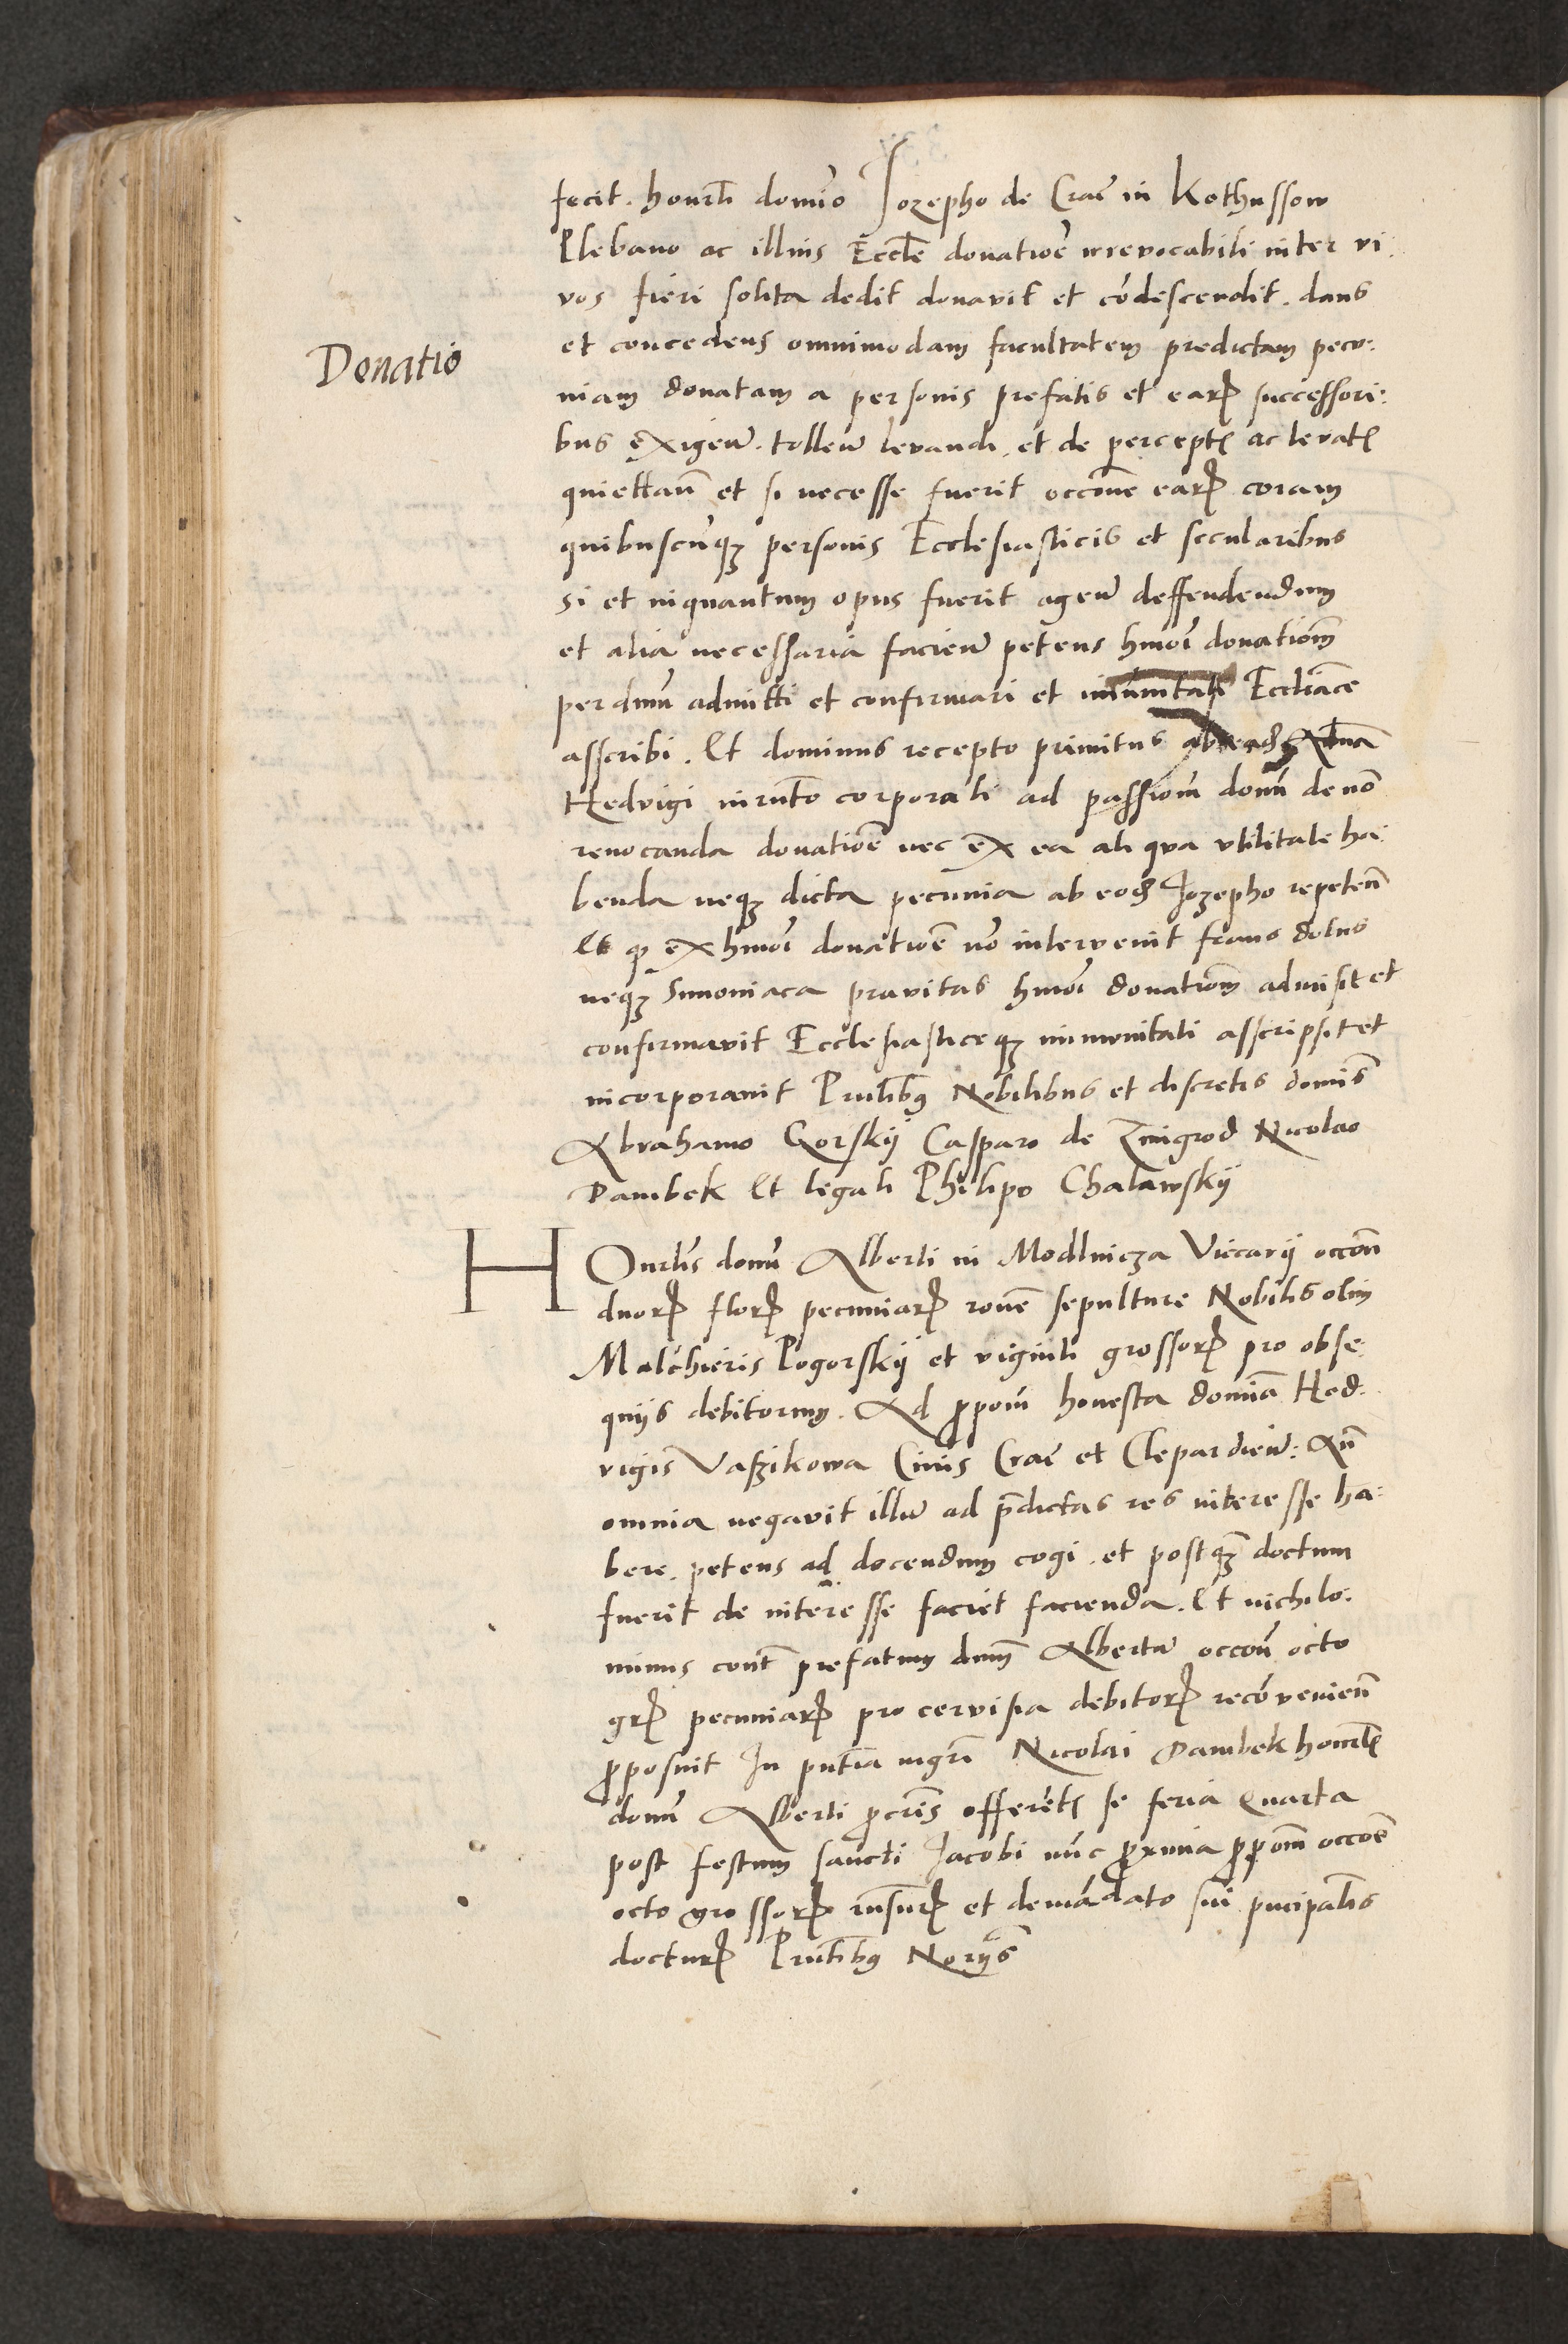 fecit. honrli domino Jozepho de Crac in Kothussow
Plebano ac illius Eccle donatioe irrevocabili inter vi:
vos fieri solita dedit donavit et condescendit. dans
Donatio
et concedens omnimodam facultatem predictam pecu:
niam donatam a personis prefatis et earum successori:
bus exigen. tollen levandi. et de perceptis ac levatis
quiettan et si necesse fuerit occone earum coram
quibuscunque personis Ecclesiasticis et secularibus
si et inquantum opus fuerit agen deffendendum
et alia necessaria facien petens hmoi donationem
per dnum admitti et confirmari et imunitati Eccliace
asscribi. Et dominus recepto primitus ab eadem
Hedvigi iurnto corporali ad passionem domini de non
revocanda donatioe nec ex ea aliqua utilitate ha:
benda neque dicta pecunia ab eodem Jozepho repeten
Et quod ex hmoi donatioe non intervenit fraus dolus
neque Simoniaca pravitas hmoi donationem admisit et
confirmavit Ecclesiasticeque immunitati asscripsit et
incorporavit Pntibus Nobilibus et discretis dominis
Abrahamo Gorskÿ Casparo de Zmigrod Nicolao
Dambek Et legali Philipo Chalawskÿ
HOnrlis domini Alberti in Modlnicza Viccarÿ occon
duorum florum pecuniarum rone sepulture Nobilis olim
Malchieris Pogorskÿ et viginti grossorum pro obse:
quÿs debitorum. Ad propom honesta domina Hed:
vigis Vaszikowa Civis Crac et Clepardien: Qn
omnia negavit illum ad predictas res interesse ha:
bere. petens ad docendum cogi. et postquam doctum
fuerit de interesse faciet facienda. Et nichilo:
minus cont prefatum dnum Albertum occon octo
grorum pecuniarum pro cervisia debitorum reconvenien
proposuit In pntia mgri Nicolai Dambek honrlis
domini Alberti procris offerentis se feria quarta
post festum sancti Jacobi nunc proxima propom occoe
octo grossorum et de mandato sui principalis
docturum Pntibus Norÿs